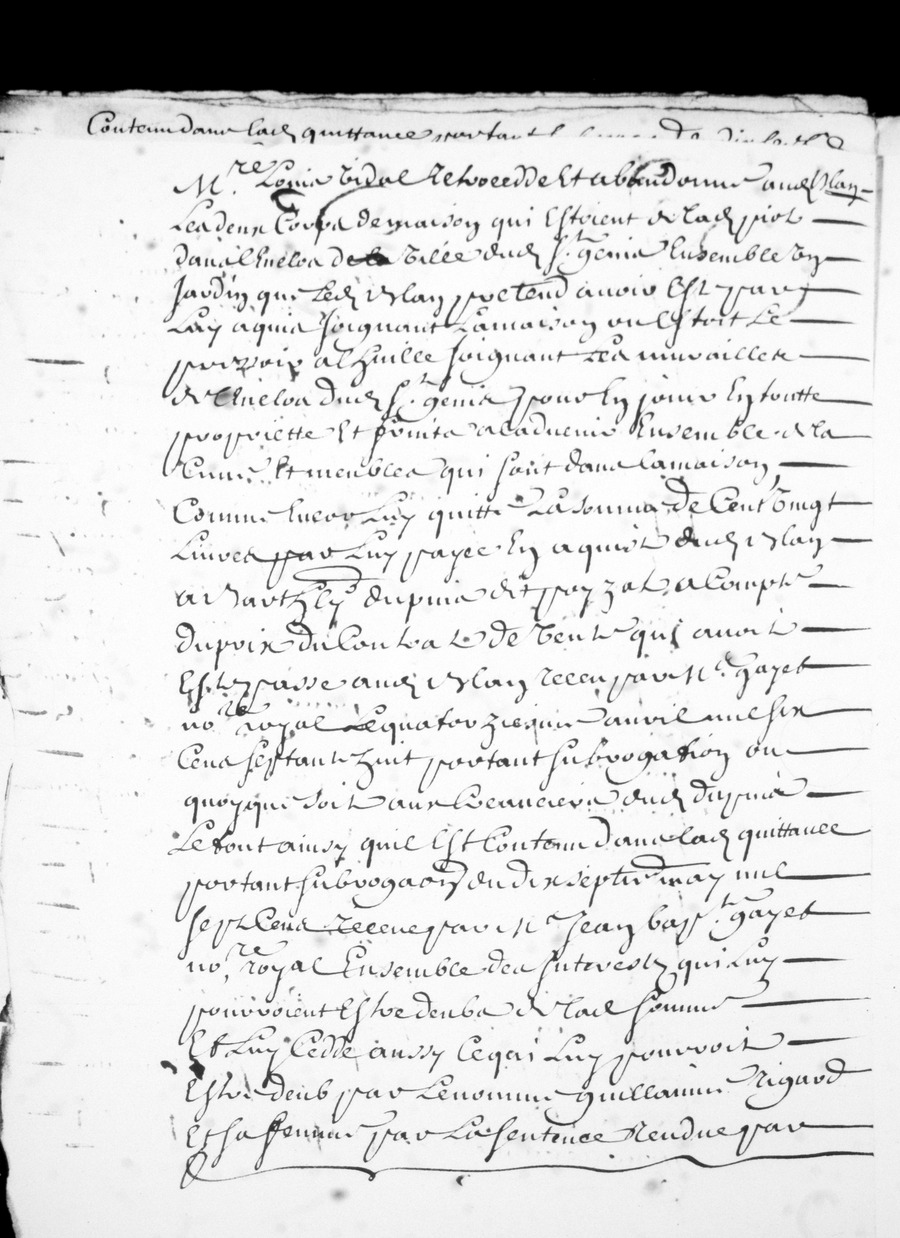 Contenu dans lad quittance portant
M.re Louis Vidal Retrocedde Et abbandonne aud Vlay
Les deux Corps de maison qui Estoient de lad piot
dans lenclos de la Ville dud S.t genis Ensemble Vn
Jardin que Led Vlay pretend avoir Est par
Luy aquis joignant Lamaison ou Estoit Le
pressoir al huille joignant Les murailles
de lenclos dud S.t genis pour En jouir En toutte
propriette Et fruits aladvenir Ensemble de la
Cuue Et meubles qui sont dans lamaison
Comme Encor Luy quitte La somme de Cent Vingt
Liures par Luy payee En aquit dud Vlay
a Barthly dupuis dit poyzat a Compte
du prix du Contrat de Vente qui avoit
Este passe aud Vlay receu par M.e gayet
no.re royal Le quatorziesme auril mil six
Cens septante huit portant subrogation ou
quoy que soit aux Creanciers dud dupuis
Le tout ainsy quil Est Contenu dans lad quittance
portant subrogaon du dix septie may mil
sept Cens receue par M.e Jean bap.t gayet
no.re royal Ensemble des Interestz qui Luy
pourroient Estre deubs de lad somme
Et Luy Cedde aussy Cequi Luy pourroit
Estre deub par Lenomme guillaume Rigard
Et sa femme par La sentence Rendue par